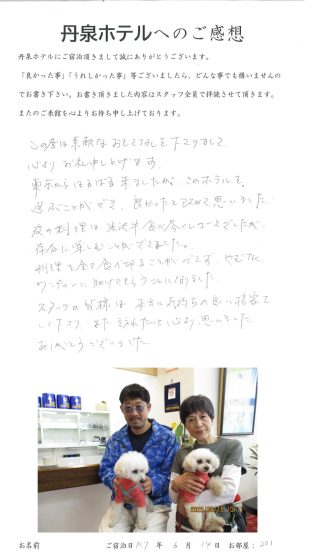 丹泉ホテルへのご感想
丹泉ホテルにご宿泊頂きまして誠にありがとうございます。
「良かった事」「うれしかった事」等ございましたら、どんな事でも構いませんの
でお書き下さい。お書き頂きました内容はスタッフ全員で拝読させて頂きます。
またのご来館を心よりお待ち申し上げております。
この度は素敵なおもてなしを下さりまして、
心よりお礼申し上げます。
東京からはるばる来ましたが、このホテルを
選ぶことができ、良かったと改めて思いました。
夜の料理は米沢牛食べ尽くしコースでしたが、
存分に楽しむことができました。
料理を全て食べ切ることができず、やむなく
ワンチャンに助けてもらうことになりました。
スタッフの皆様は本当に気持ちの良い接客で
いたので、また訪れたいと心より思いました。
ありがとうございました。
お名前 ご宿泊日 R7 年 6 月 14 日 お部屋: 201